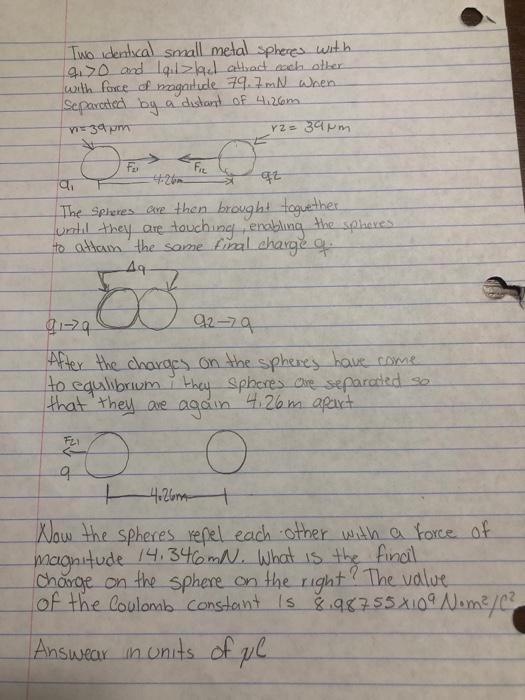 Two identical small metal spheres with
q1>0 and |q1|>|q2| attract each other
with force of magnitude 79.7mN when
Separated by a distant of 4.26m
r1=39μm
r2= 39μm
F21
F12
4.26m
q1
q2
The spheres are then brought toguether
until they are touching, enabling the spheres
to attain the same final charge q.
Δq
q1→q
q2→q
After the charges on the spheres have come
to equlibrium, they spheres are separated so
that they are again 4.26m apart
F21
q
4.26m
Now the spheres repel each other with a force of
magnitude 14.346mN. What is the final
charge on the sphere on the right? The value
of the Coulomb constant is 8.98755x10⁹ N.m²/C²
Answear in units of μC